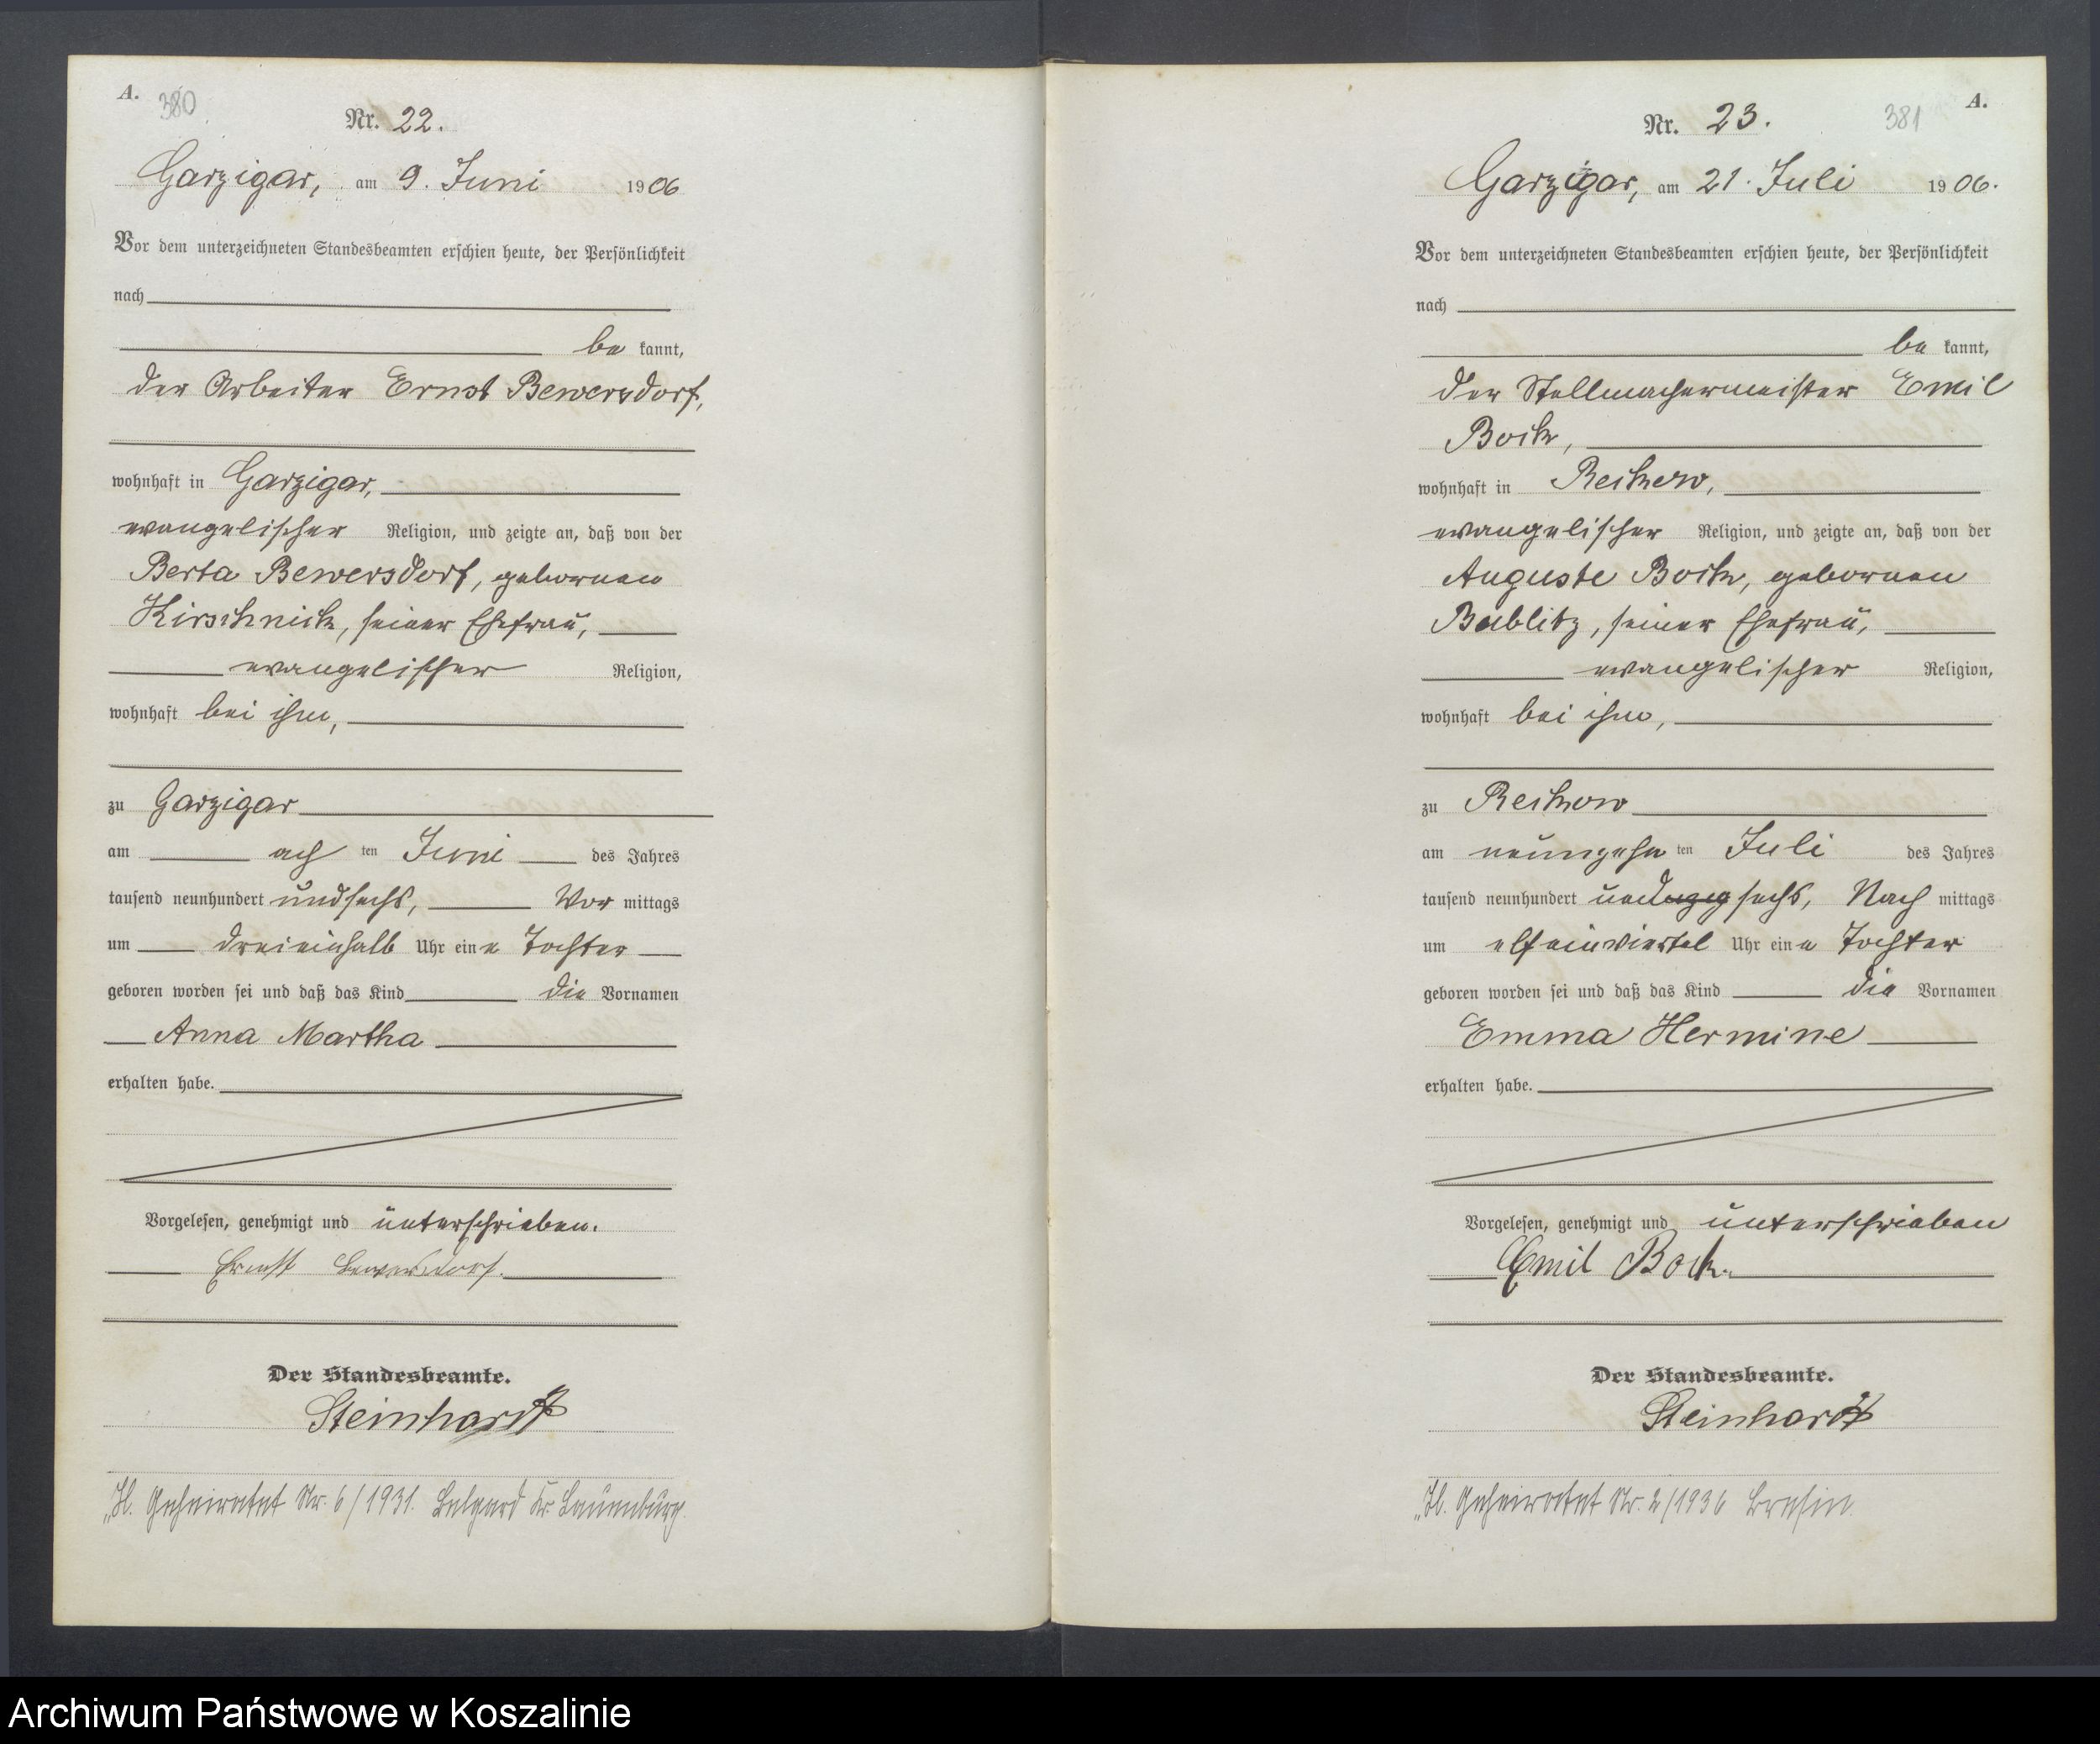 A.
380
Nr. 22.
Garzigar, am 9. Juni 1906
Vor dem unterzeichneten Standesbeamten erschien heute, der Persönlichkeit
nach
be kannt,
der Arbeiter Ernst Bewersdorf,
wohnhaft in Garzigar,
evangelischer Religion, und zeigte an, daß von der
Berta Bewersdorf, geborenen
Kirschnick, seiner Ehefrau,
evangelischer Religion,
wohnhaft bei ihm,
zu Garzigar
am ach ten Juni des Jahres
tausend neunhundert undsechs, Vor mittags
um dreieinhalb Uhr eine Tochter
geboren worden sei und daß das Kind die Vornamen
Anna Martha
erhalten habe.
Vorgelesen, genehmigt und unterschrieben.
Ernst Bewersdorf.
Der Standesbeamte.
Steinhardt
Geheiratet Nr. 6/1931. Belgard Kr. Lauenburg.
A.
381
Nr. 23.
Garzigar, am 21. Juli 1906.
Vor dem unterzeichneten Standesbeamten erschien heute, der Persönlichkeit
nach
be kannt,
der Stellmachermeister Emil
Bock,
wohnhaft in Reckow,
evangelischer Religion, und zeigte an, daß von der
Auguste Bock, geborenen
Bublitz, seiner Ehefrau,
evangelischer Religion,
wohnhaft bei ihm,
zu Reckow
am neunzehn ten Juli des Jahres
tausend neunhundert und sechs, Nach mittags
um elfeinviertel Uhr eine Tochter
geboren worden sei und daß das Kind die Vornamen
Emma Hermine
erhalten habe.
Vorgelesen, genehmigt und unterschrieben
Emil Bock.
Der Standesbeamte.
Steinhardt
Geheiratet Nr. 2/1936 Bresin.
Archiwum Państwowe w Koszalinie